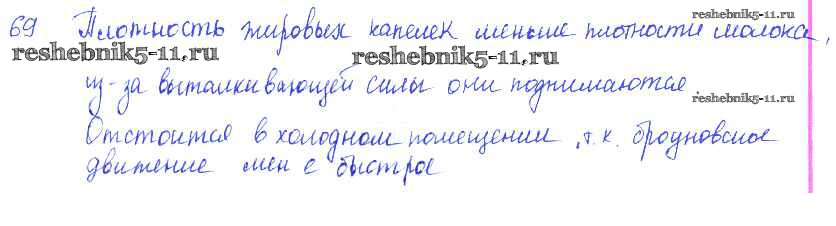 69 Плотность жировых капелек меньше плотности молока,
reshebnik5-11.ru
reshebnik5-11.ru
reshebnik5-11.ru
из-за выталкивающей силы они поднимаются.
reshebnik5-11.ru
Отстоится в холодном помещении, т.к. броуновское
движение менее быстрое